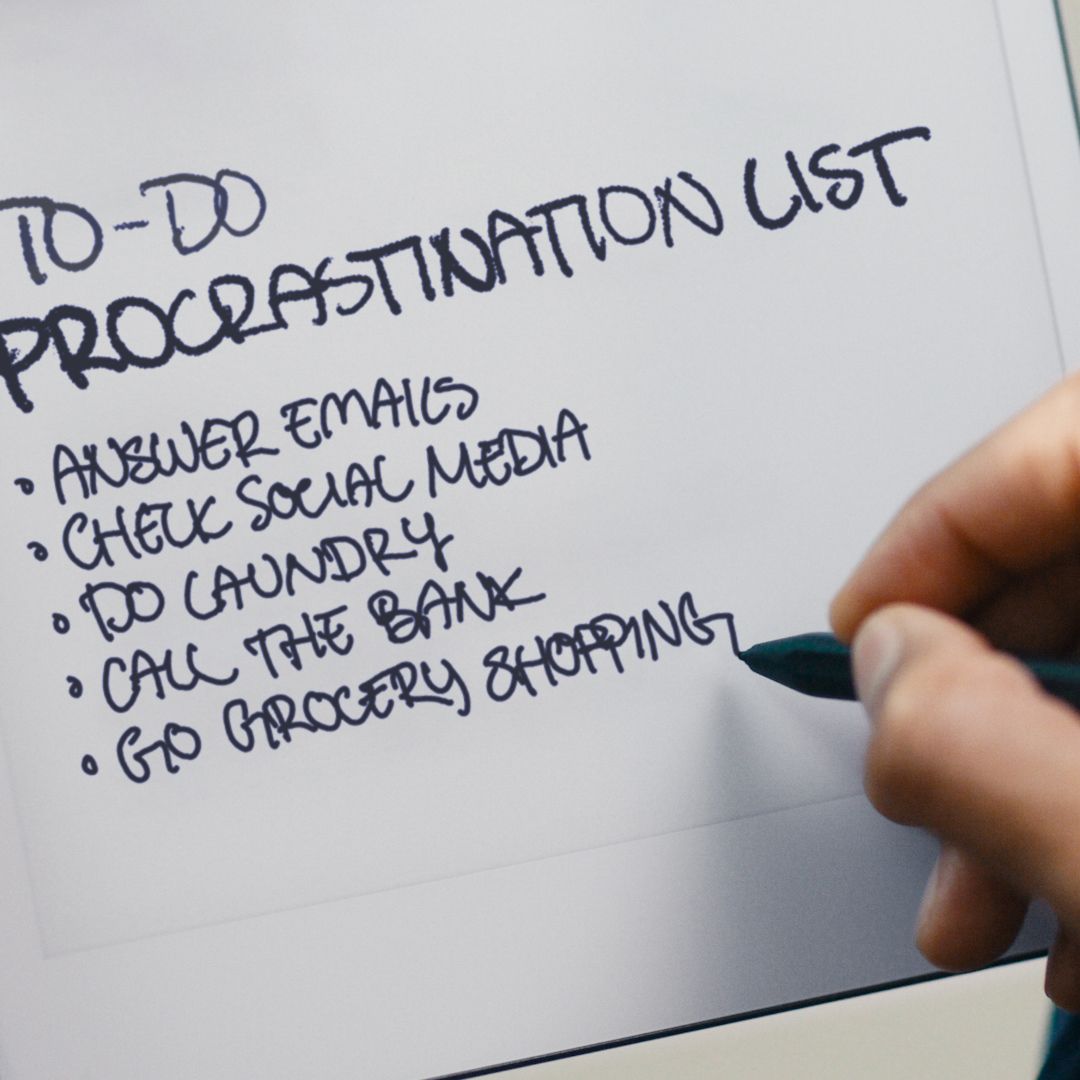 TO-DO
PROCRASTINATION LIST
• ANSWER EMAILS
• CHECK SOCIAL MEDIA
• DO LAUNDRY
• CALL THE BANK
• GO GROCERY SHOPPING